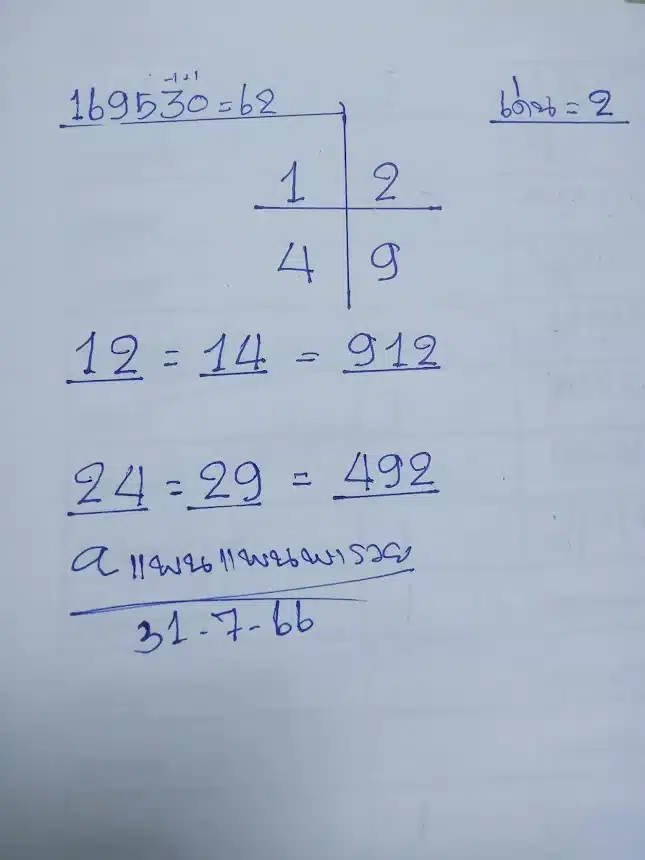 -1+1
169530=62
เด่น = 2
1 2
4 9
12 = 14 = 912
24 = 29 = 492
a แพนแพนพารวย
31-7-66